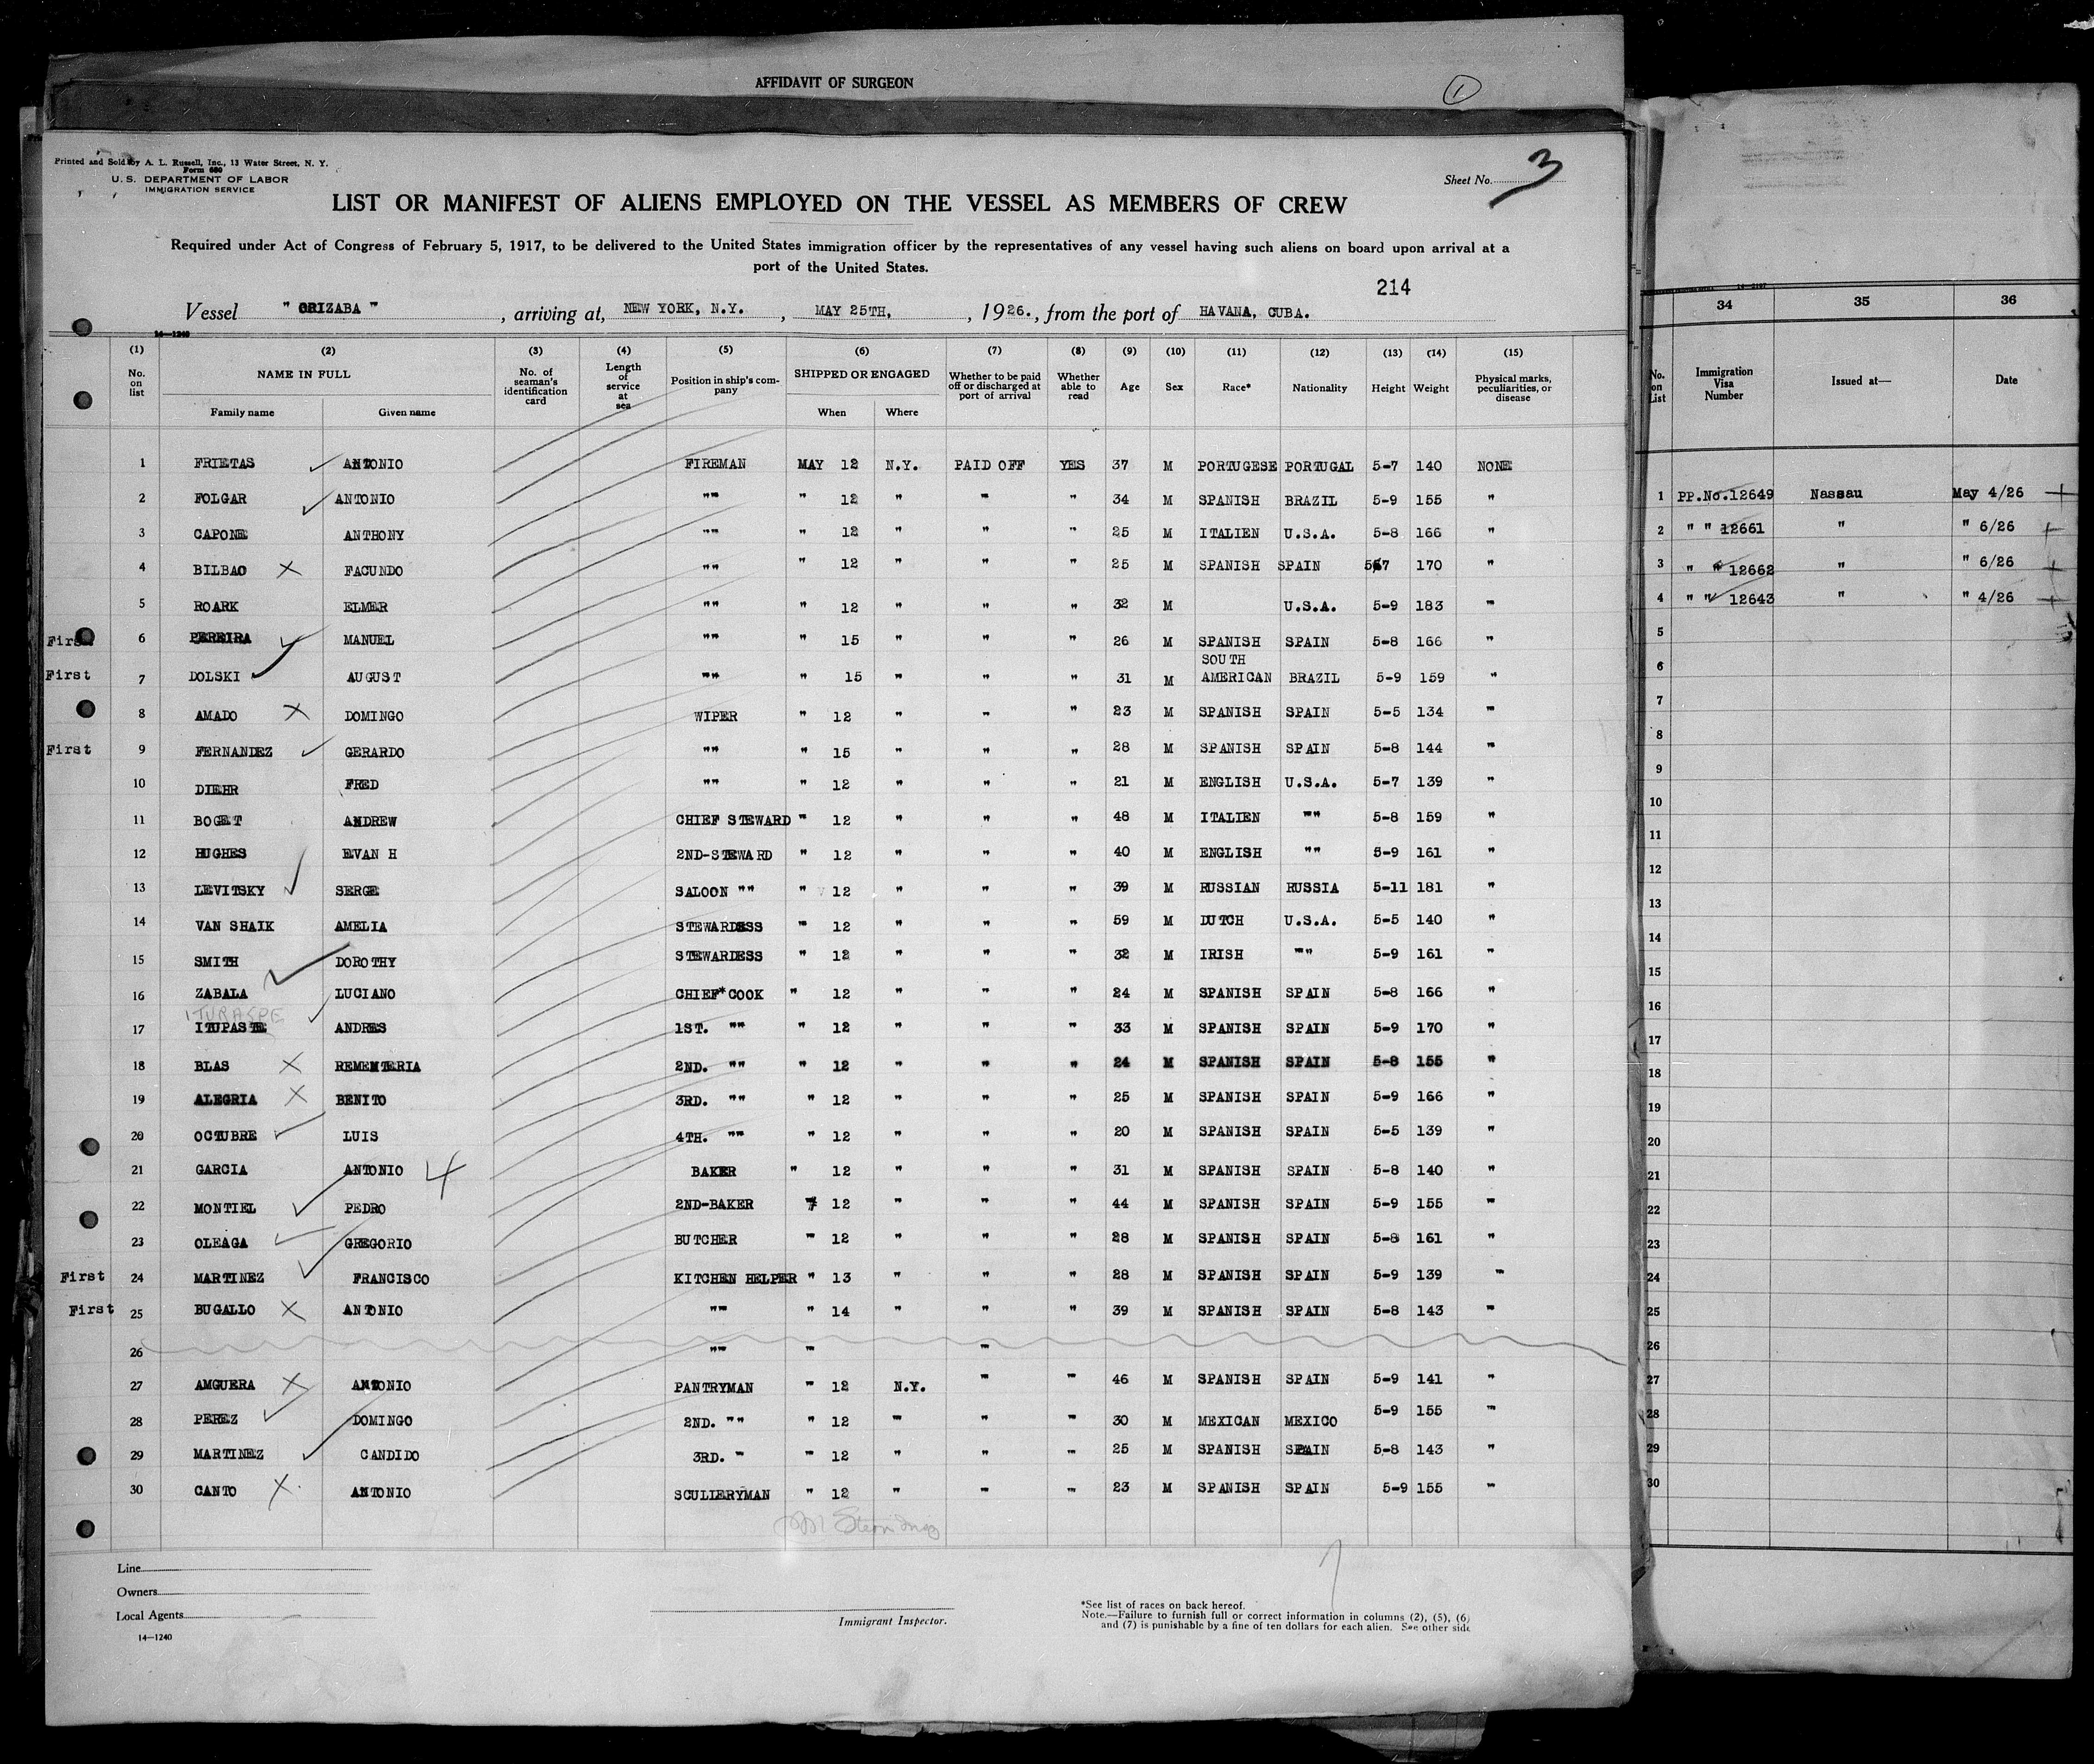 AFFIDAVIT OF SURGEON
1
Printed and Sold by A. L. Russell, Inc., 13 Water Street, N. Y.
Form 680
U. S. DEPARTMENT OF LABOR
IMMIGRATION SERVICE
Sheet No. 3
LIST OR MANIFEST OF ALIENS EMPLOYED ON THE VESSEL AS MEMBERS OF CREW
Required under Act of Congress of February 5, 1917, to be delivered to the United States immigration officer by the representatives of any vessel having such aliens on board upon arrival at a
port of the United States.
214
Vessel " ORIZABA " , arriving at, NEW YORK, N.Y. , MAY 25TH, , 1926., from the port of HAVANA, CUBA.
14-1240
(1) (2) (3) (4) (5) (6) (7) (8) (9) (10) (11) (12) (13) (14) (15)
No. on list NAME IN FULL Family name Given name No. of seaman's identification card Length of service at sea Position in ship's company SHIPPED OR ENGAGED When Where Whether to be paid off or discharged at port of arrival Whether able to read Age Sex Race* Nationality Height Weight Physical marks, peculiarities, or disease
1 FRIETAS ANTONIO FIREMAN MAY 12 N.Y. PAID OFF YES 37 M PORTUGESE PORTUGAL 5-7 140 NONE
2 FOLGAR ANTONIO "" " 12 " " " 34 M SPANISH BRAZIL 5-9 155 "
3 CAPONE ANTHONY "" " 12 " " " 25 M ITALIEN U.S.A. 5-8 166 "
4 BILBAO X FACUNDO "" " 12 " " " 25 M SPANISH SPAIN 5-7 170 "
5 ROARK ELMER "" " 12 " " " 32 M U.S.A. 5-9 183 "
First 6 PEREIRA MANUEL "" " 15 " " " 26 M SPANISH SPAIN 5-8 166 "
First 7 DOLSKI AUGUST "" " 15 " " " 31 M SOUTH AMERICAN BRAZIL 5-9 159 "
8 AMADO X DOMINGO WIPER " 12 " " " 23 M SPANISH SPAIN 5-5 134 "
First 9 FERNANDEZ GERARDO "" " 15 " " " 28 M SPANISH SPAIN 5-8 144 "
10 DIEHR FRED "" " 12 " " " 21 M ENGLISH U.S.A. 5-7 139 "
11 BOGET ANDREW CHIEF STEWARD " 12 " " " 48 M ITALIEN "" 5-8 159 "
12 HUGHES EVAN H 2ND-STEWARD " 12 " " " 40 M ENGLISH "" 5-9 161 "
13 LEVITSKY SERGE SALOON "" " 12 " " " 39 M RUSSIAN RUSSIA 5-11 181 "
14 VAN SHAIK AMELIA STEWARDESS " 12 " " " 59 M DUTCH U.S.A. 5-5 140 "
15 SMITH DOROTHY STEWARDESS " 12 " " " 32 M IRISH "" 5-9 161 "
16 ZABALA LUCIANO CHIEF*COOK " 12 " " " 24 M SPANISH SPAIN 5-8 166 "
ITURASPE
17 ITUPASTE ANDRES 1ST. "" " 12 " " " 33 M SPANISH SPAIN 5-9 170 "
18 BLAS X REMENTERIA 2ND. "" " 12 " " " 24 M SPANISH SPAIN 5-8 155 "
19 ALEGRIA X BENITO 3RD. "" " 12 " " " 25 M SPANISH SPAIN 5-9 166 "
20 OCTUBRE LUIS 4TH. "" " 12 " " " 20 M SPANISH SPAIN 5-5 139 "
21 GARCIA ANTONIO 4 BAKER " 12 " " " 31 M SPANISH SPAIN 5-8 140 "
22 MONTIEL PEDRO 2ND-BAKER " 12 " " " 44 M SPANISH SPAIN 5-9 155 "
23 OLEAGA GREGORIO BUTCHER " 12 " " " 28 M SPANISH SPAIN 5-8 161 "
First 24 MARTINEZ FRANCISCO KITCHEN HELPER " 13 " " " 28 M SPANISH SPAIN 5-9 139 "
First 25 BUGALLO X ANTONIO "" " 14 " " " 39 M SPANISH SPAIN 5-8 143 "
26 "" " "
27 AMGUERA X ANTONIO PANTRYMAN " 12 N.Y. " " 46 M SPANISH SPAIN 5-9 141 "
28 PEREZ DOMINGO 2ND. "" " 12 " " " 30 M MEXICAN MEXICO 5-9 155 "
29 MARTINEZ CANDIDO 3RD. " " 12 " " " 25 M SPANISH SPAIN 5-8 143 "
30 CANTO X ANTONIO SCULLERYMAN " 12 " " " 23 M SPANISH SPAIN 5-9 155 "
Line
Owners
Local Agents
14-1240
Immigrant Inspector.
*See list of races on back hereof.
Note.—Failure to furnish full or correct information in columns (2), (5), (6)
and (7) is punishable by a fine of ten dollars for each alien. See other side
34 35 36
No. on List Immigration Visa Number Issued at— Date
1 PP.No.12649 Nassau May 4/26
2 " " 12661 " " 6/26
3 " " 12662 " " 6/26
4 " " 12643 " " 4/26
5
6
7
8
9
10
11
12
13
14
15
16
17
18
19
20
21
22
23
24
25
26
27
28
29
30